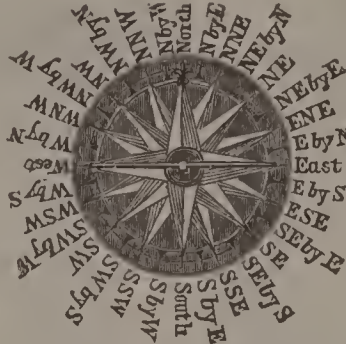 North
NbyE
NNE
NEbyN
NE
NEbyE
ENE
EbyN
East
EbyS
ESE
SEbyE
SE
SEbyS
SSE
SbyE
South
SbyW
SSW
SWbyS
SW
SWbyW
WSW
WbyS
West
WbyN
WNW
NWbyW
NW
NWbyN
NNW
NbyW